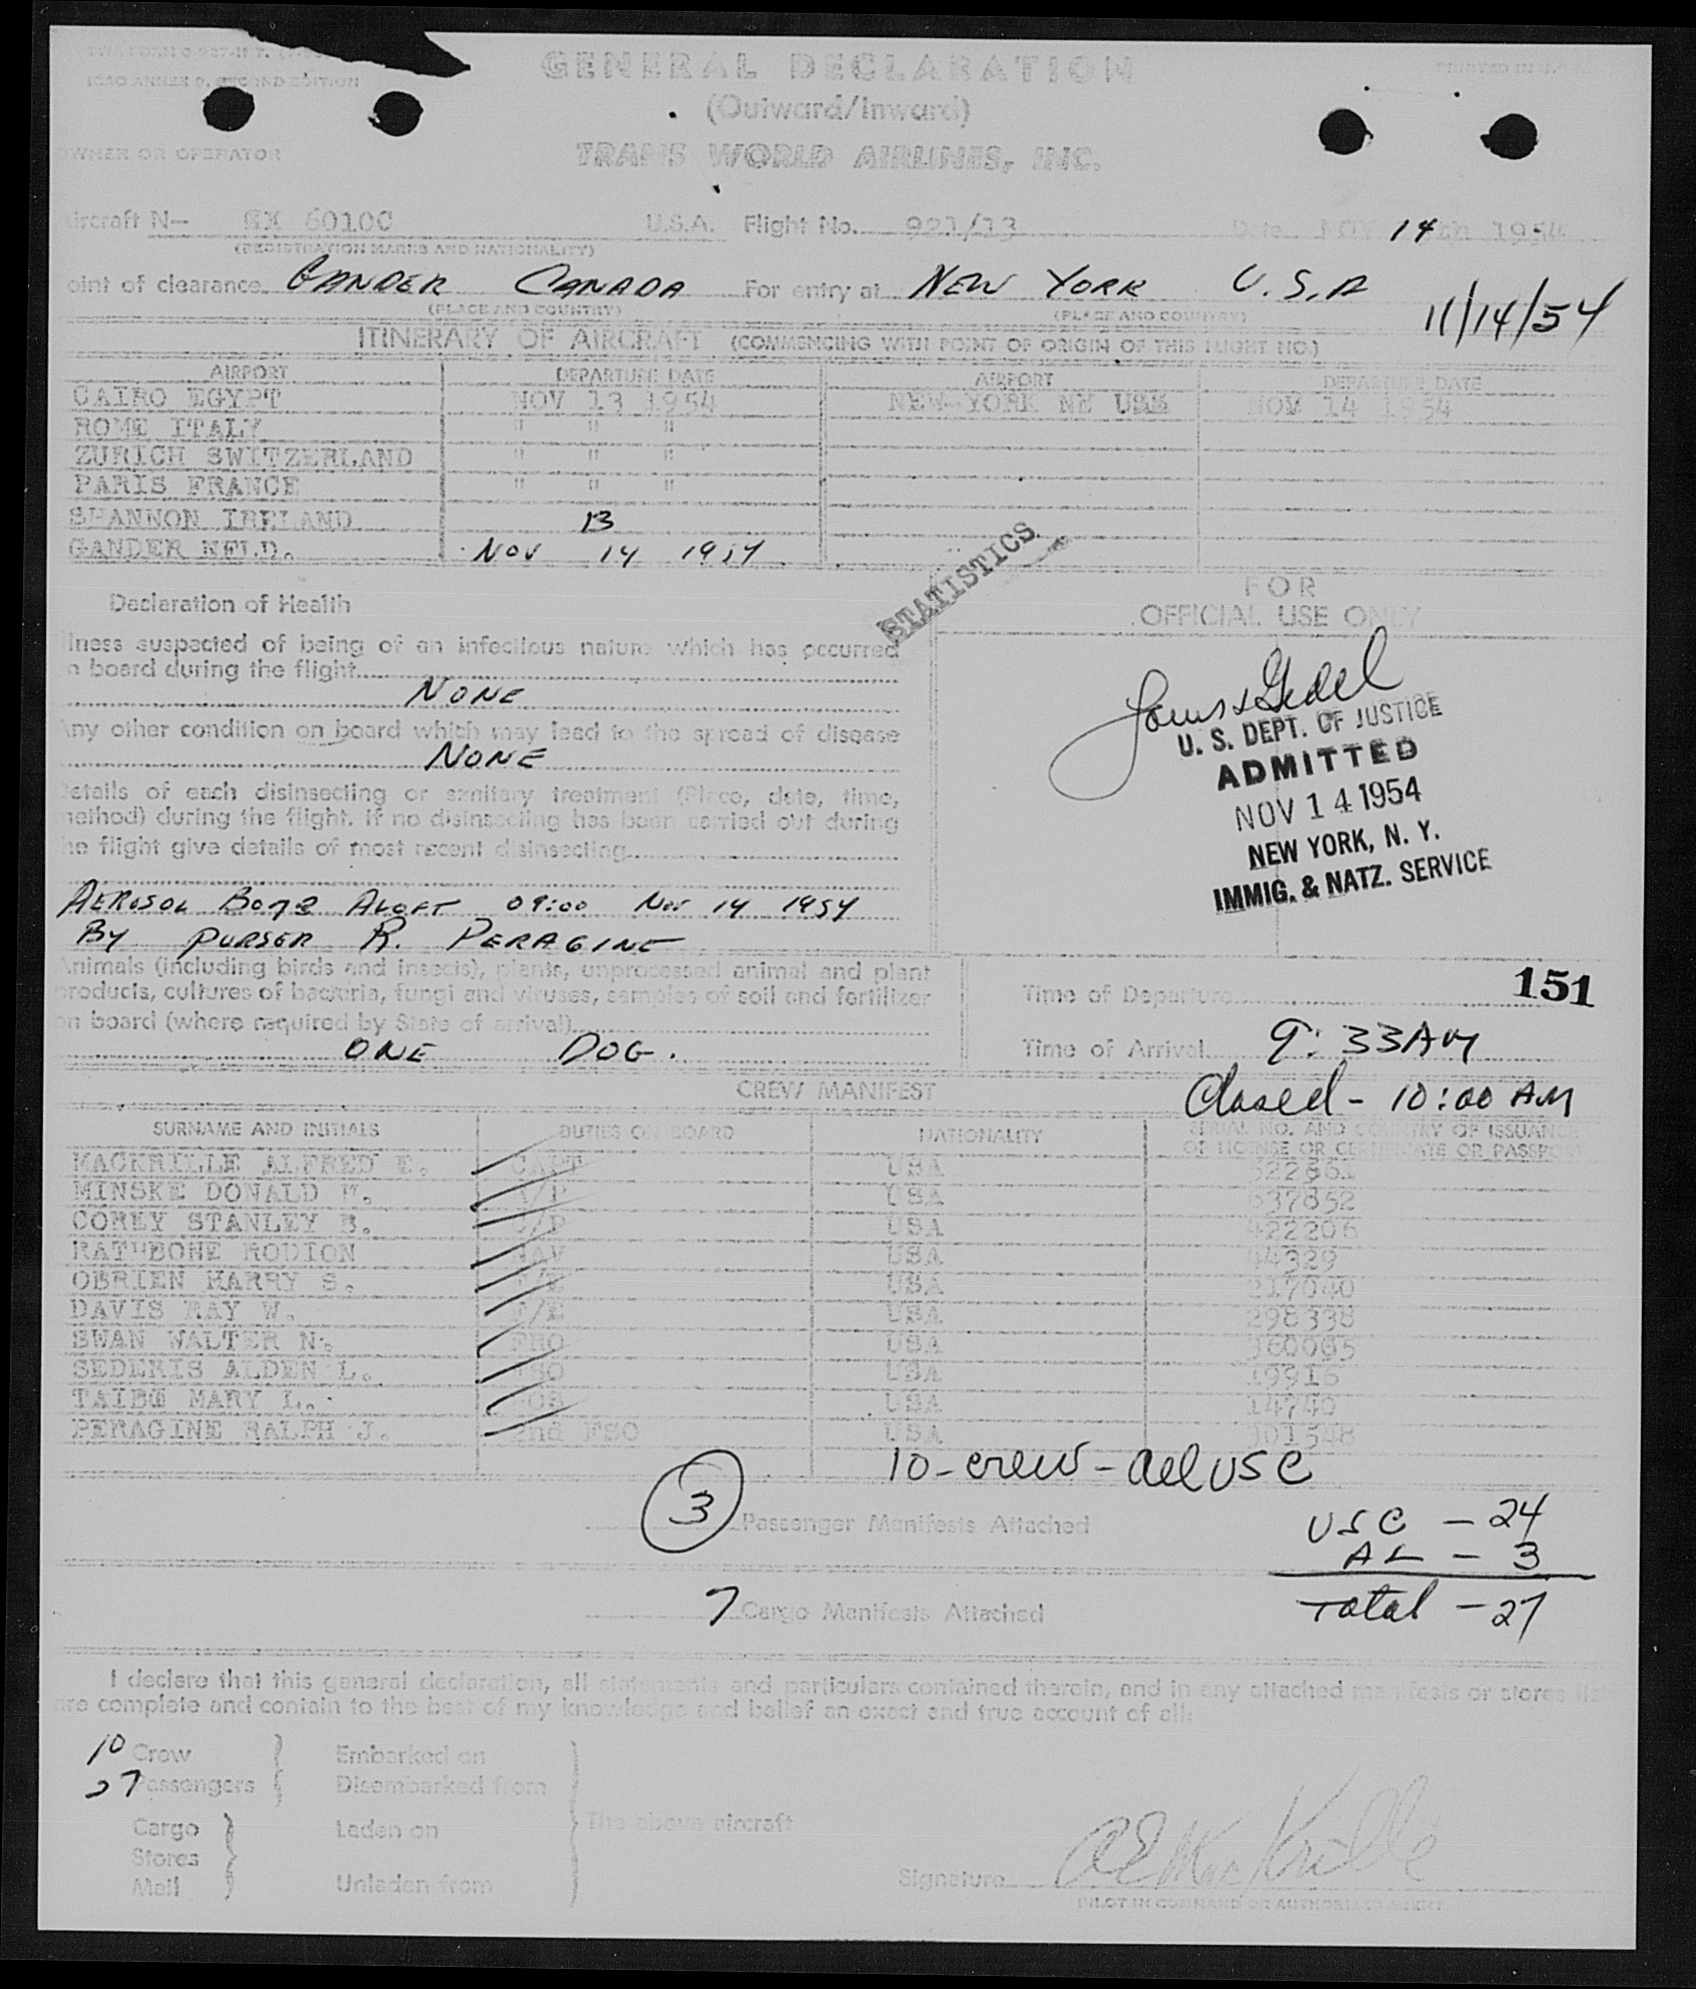 ICAO ANNEX 9, SECOND EDITION
PRINTED IN U.S.A.
GENERAL DECLARATION
(Outward/Inward)
OWNER OR OPERATOR
TRANS WORLD AIRLINES, INC.
ircraft N— 6010C U.S.A. Flight No. 921/13 Date NOV 14th 1954
(REGISTRATION MARKS AND NATIONALITY)
oint of clearance GANDER CANADA For entry at NEW YORK U.S.A
(PLACE AND COUNTRY) (PLACE AND COUNTRY)
11/14/54
ITINERARY OF AIRCRAFT (COMMENCING WITH POINT OF ORIGIN OF THIS FLIGHT NO.)
AIRPORT DEPARTURE DATE AIRPORT DEPARTURE DATE
CAIRO EGYPT NOV 13 1954 NEW YORK NE USA NOV 14 1954
ROME ITALY " " "
ZURICH SWITZERLAND " " "
PARIS FRANCE " " "
SHANNON IRELAND 13
GANDER NFLD. NOV 14 1954
STATISTICS
FOR
OFFICIAL USE ONLY
Declaration of Health
llness suspected of being of an infectious nature which has occurred
n board during the flight
NONE
Any other condition on board which may lead to the spread of disease
NONE
Details of each disinsecting or sanitary treatment (Place, date, time,
method) during the flight. If no disinsecting has been carried out during
he flight give details of most recent disinsecting
AEROSOL BOMB ALOFT 09:00 NOV 14 1954
BY PURSER R. PERAGINE
U. S. DEPT. OF JUSTICE
ADMITTED
NOV 14 1954
NEW YORK, N. Y.
IMMIG. & NATZ. SERVICE
Animals (including birds and insects), plants, unprocessed animal and plant
products, cultures of bacteria, fungi and viruses, samples of soil and fertilizer
on board (where required by State of arrival)
ONE DOG.
151
Time of Departure
Time of Arrival 9:33AM
Closed - 10:00 AM
CREW MANIFEST
SURNAME AND INITIALS DUTIES ON BOARD NATIONALITY SERIAL NO. AND COUNTRY OF ISSUANCE
OF LICENSE OR CERTIFICATE OR PASSPORT
MACKRILLE ALFRED E. CAPT USA
MINSKE DONALD F. USA 637852
COREY STANLEY B. USA 422206
RATHBONE RODION NAV USA 44329
OBRIEN HARRY S. F/E USA 217040
DAVIS RAY W. F/E USA 298338
SWAN WALTER N. FRO USA 360065
SEDERIS ALDEN L. FSO USA 19916
TAIBI MARY L. USA 14740
PERAGINE RALPH J. 2nd FSO USA
10 - crew - all USC
3 Passenger Manifests Attached
USC - 24
AL - 3
Total - 27
7 Cargo Manifests Attached
I declare that this general declaration, all statements and particulars contained therein, and in any attached manifests or stores
are complete and contain to the best of my knowledge and belief an exact and true account of all:
10 Crew Embarked on
27 Passengers Disembarked from
Cargo Laden on The above aircraft
Stores
Mail Unladen from
Signature A E MacKrille
PILOT IN COMMAND OR AUTHORIZED AGENT